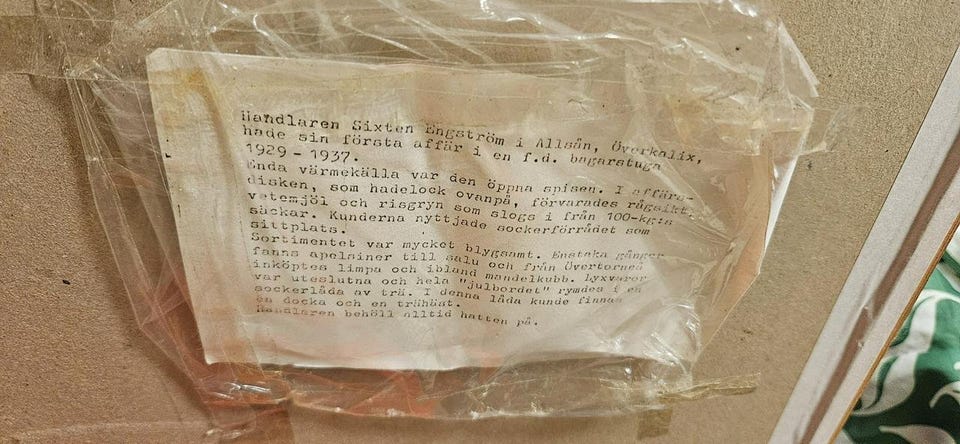 Handlaren Sixten Engström i Allsån, Överkalix,
hade sin första affär i en f.d. bagarstuga
1929 - 1937.
Enda värmekälla var den öppna spisen. I affärs-
disken, som hadelock ovanpå, förvarades rågsikt,
vetemjöl och risgryn som slogs i från 100-kg:s
säckar. Kunderna nyttjade sockerförrådet som
sittplats.
Sortimentet var mycket blygsamt. Enstaka gånger
fanns apelsiner till salu och från Övertorneå
inköptes limpa och ibland mandelkubb. Lyxvaror
var uteslutna och hela "julbordet" rymdes i en
sockerlåda av trä. I denna låda kunde finnas
en docka och en trähäst.
Handlaren behöll alltid hatten på.